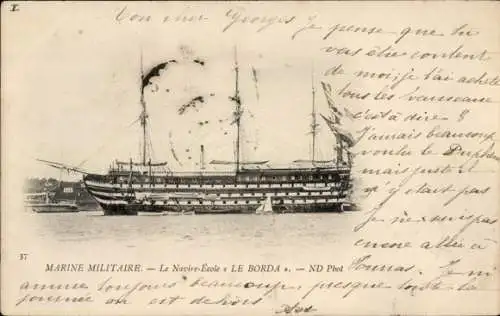 I
Mon cher Georges je pense que tu
vas être content
de moi, je t'ai acheté
tous les vaisseaux
c'est à dire
j'aurais beaucoup
voulu le
mais
y était pas
Je ne suis pas
encore allée à
Je m'
amuse toujours beaucoup, presque toute la
journée on est dehors
37
MARINE MILITAIRE. — Le Navire-École « LE BORDA ». — ND Phot